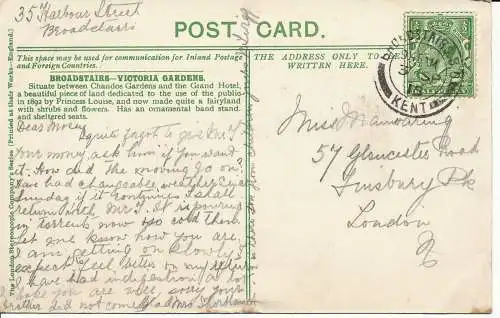 35 Harbour Street
Broadstairs
POST CARD.
This space may be used for communication for Inland Postage
and Foreign Countries.
THE ADDRESS ONLY TO
WRITTEN HERE.
BROADSTAIRS—VICTORIA GARDENS.
Situate between Chandos Gardens and the Grand Hotel,
a beautiful piece of land dedicated to the use of the public
in 1892 by Princess Louise, and now made quite a fairyland
with shrubs and flowers. Has an ornamental band stand,
and sheltered seats.
The London Stereoscopic Company's Series (Printed at their Works—England.)
Dear
I quite forgot to give
your money, ask him if you want
it. How did the moving go on?
have had changeable weather
Sunday if it continues I shall
return with Mr. It is pouring
in torrents now so cold
let me know how you are.
I am getting on slowly I
expect feel better on my return
I have had indigestion
you are well, sorry your
did not come
Miss Mainwaring
57 Gloucester Road
Finsbury Pk
London
N
BROADSTAIRS
KENT